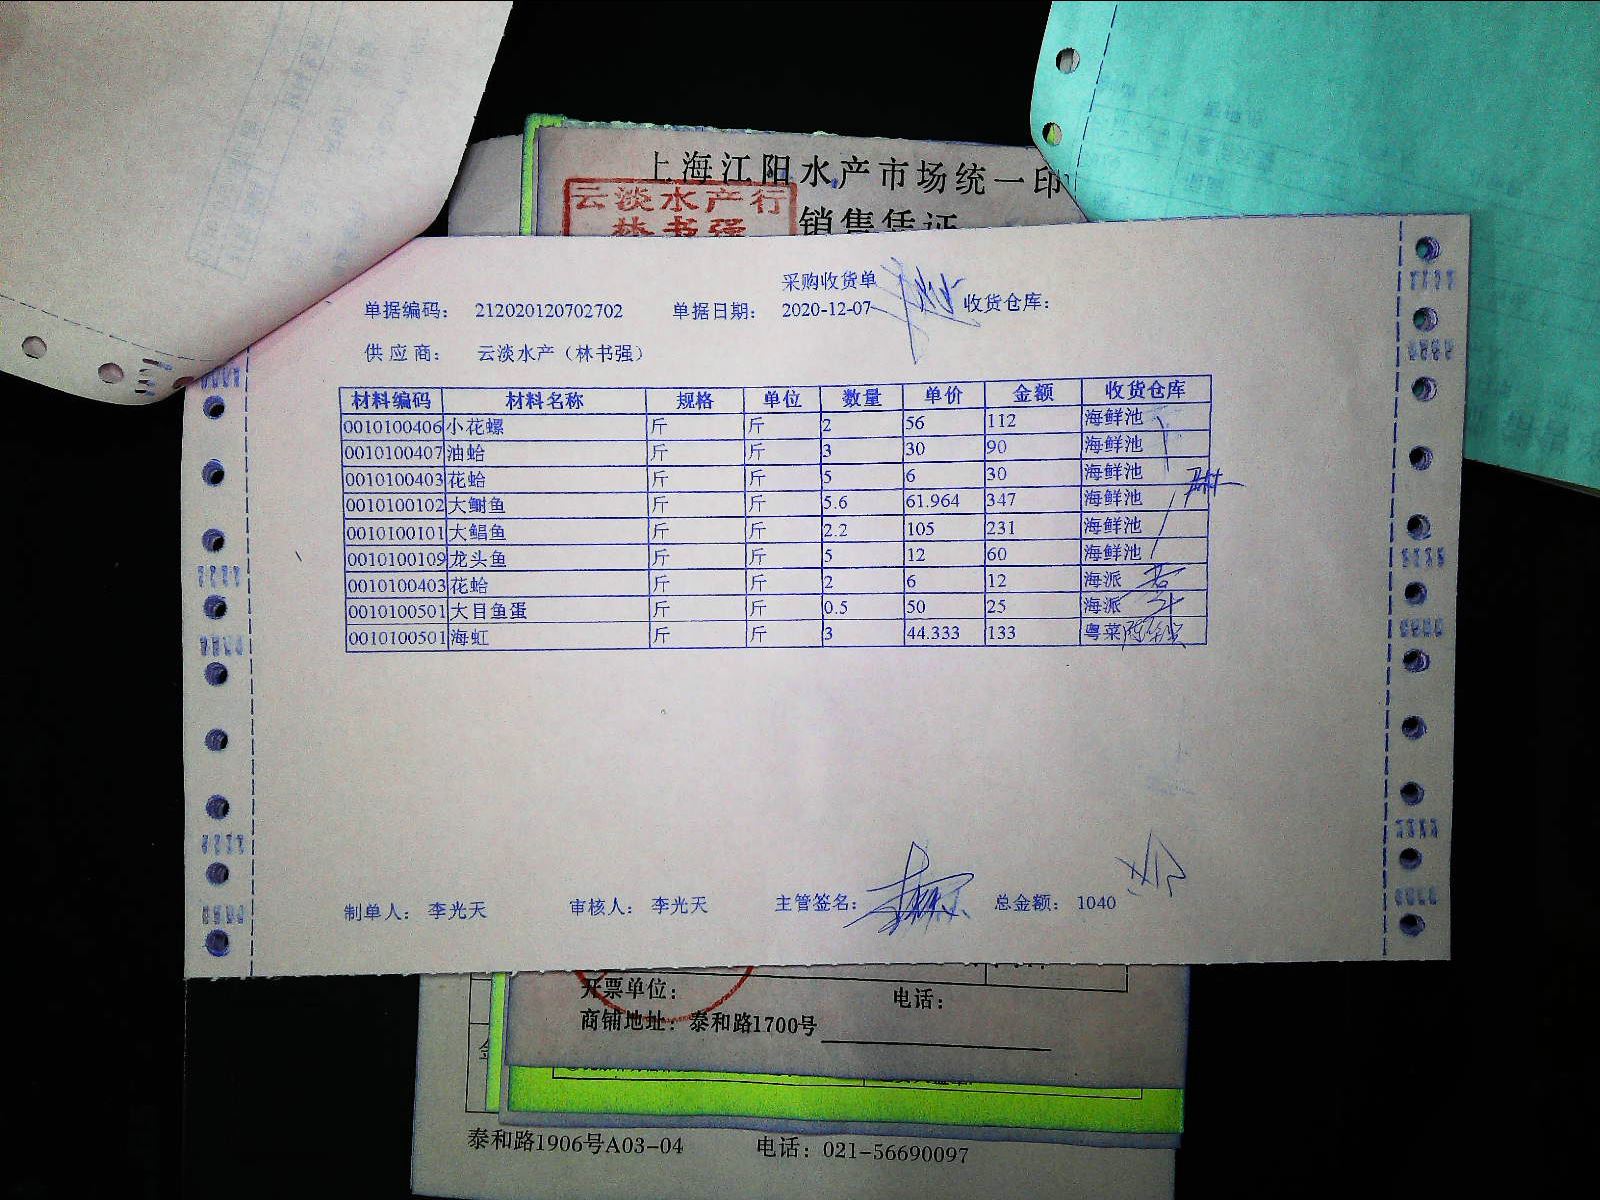 上海江阳水产市场统一印
云淡水产行
林书强
销售凭证
采购收货单
单据编码： 212020120702702 单据日期： 2020-12-07 收货仓库：
供应商： 云淡水产（林书强）
材料编码 材料名称 规格 单位 数量 单价 金额 收货仓库
0010100406 小花螺 斤 斤 2 56 112 海鲜池
0010100407 油蛤 斤 斤 3 30 90 海鲜池
0010100403 花蛤 斤 斤 5 6 30 海鲜池
0010100102 大鲥鱼 斤 斤 5.6 61.964 347 海鲜池
0010100101 大鲳鱼 斤 斤 2.2 105 231 海鲜池
0010100109 龙头鱼 斤 斤 5 12 60 海鲜池
0010100403 花蛤 斤 斤 2 6 12 海派
0010100501 大目鱼蛋 斤 斤 0.5 50 25 海派
0010100501 海虹 斤 斤 3 44.333 133 粤菜
制单人： 李光天 审核人： 李光天 主管签名： 总金额： 1040
开票单位： 电话：
商铺地址：泰和路1700号
泰和路1906号A03-04 电话：021-56690097